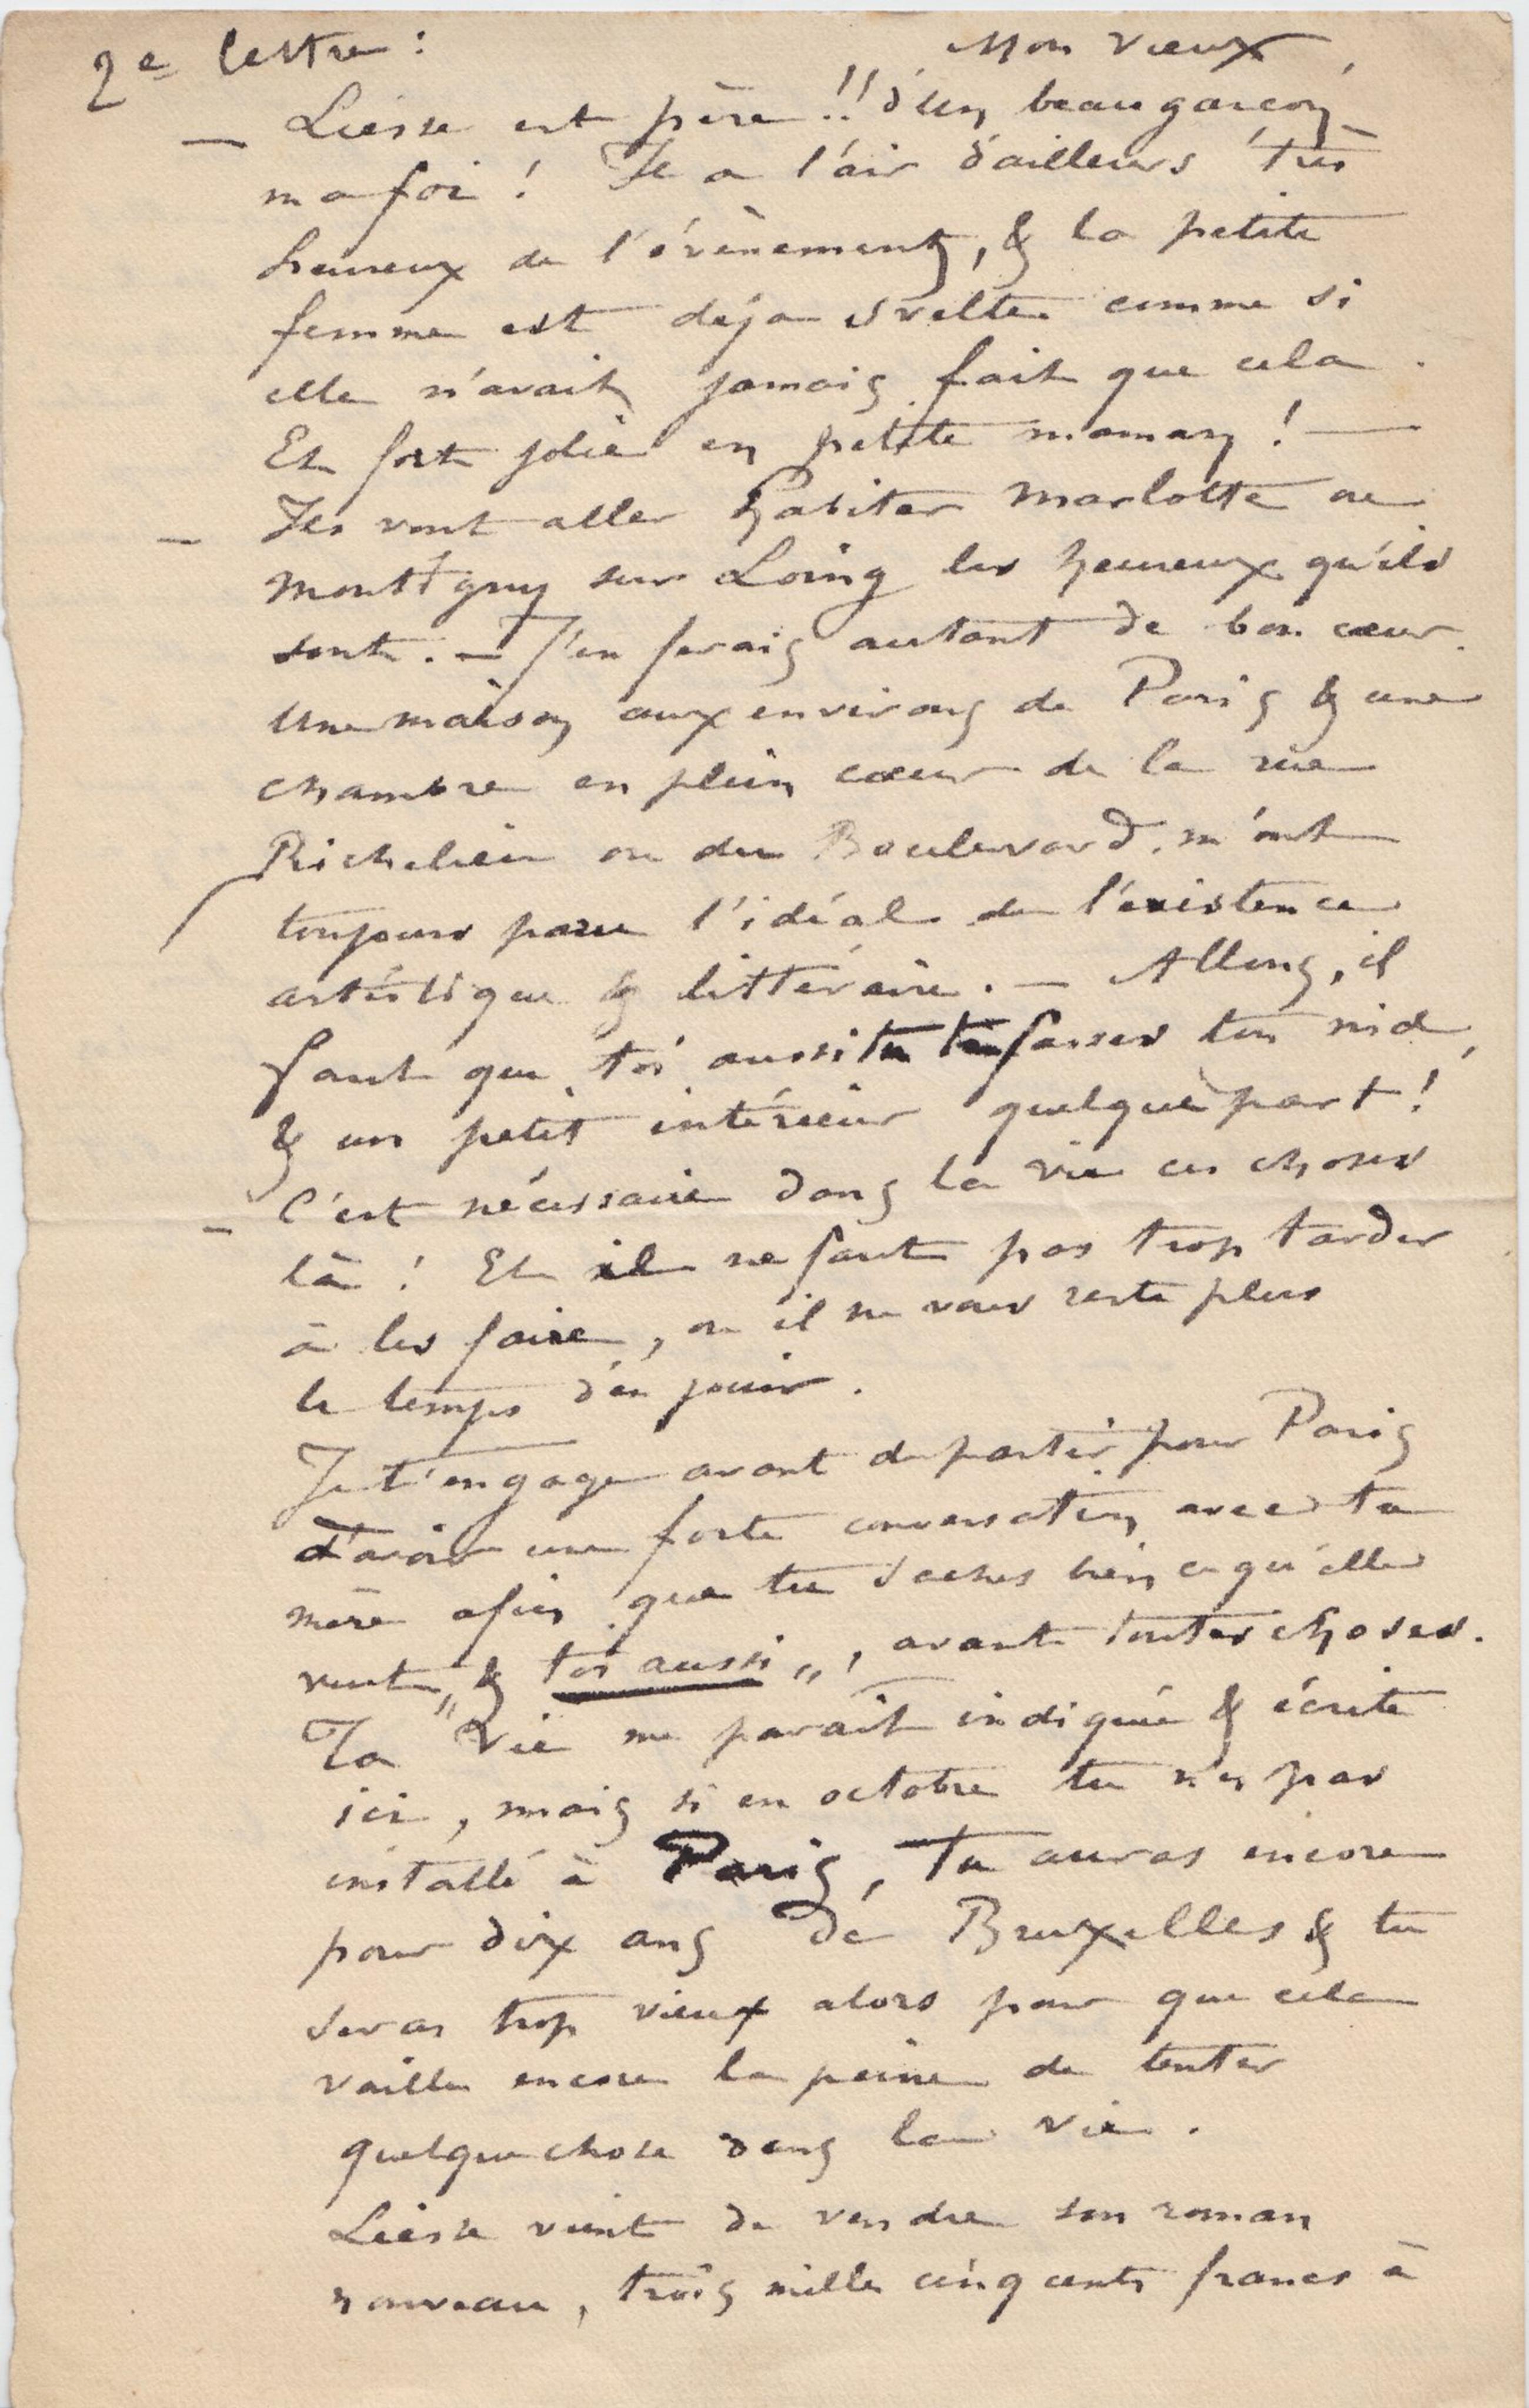 2e lettre :
Mon vieux,
— Liesse est père !! d'un beau garçon
ma foi ! Il a l'air d'ailleurs très
heureux de l'évènement, & la petite
femme est déja svelte comme si
elle n'avait jamais fait que cela.
Et fort jolie en petite maman ! —
— Ils vont aller habiter Marlotte ou
Montigny sur Loing les heureux qu'ils
sont. — J'en ferais autant de bon cœur.
Une maison aux environs de Paris & une
chambre en plein cœur de la rue
Richelieu ou du Boulevard, m'ont
toujours paru l'idéal de l'existence
artistique & littéraire. — Allons, il
faut que toi aussi tu fasses ton nid,
& un petit intérieur quelque part !
— C'est nécessaire dans la vie ces choses
là ! Et il ne faut pas trop tarder
à les faire, ou il ne vous reste plus
le temps d'en jouir.
Je t'engage avant de partir pour Paris
d'avoir une forte conversation avec ta
mère afin que tu saches bien ce qu'elle
veut „& toi aussi„, avant toutes choses.
Ta vie me parait indiquée & écrite
ici, mais si en octobre tu n'es pas
installé à Paris, tu auras encore
pour dix ans de Bruxelles & tu
seras trop vieux alors pour que cela
vaille encore la peine de tenter
quelque chose dans la vie.
Liesse vient de vendre son roman
nouveau, trois mille cinq cents francs à